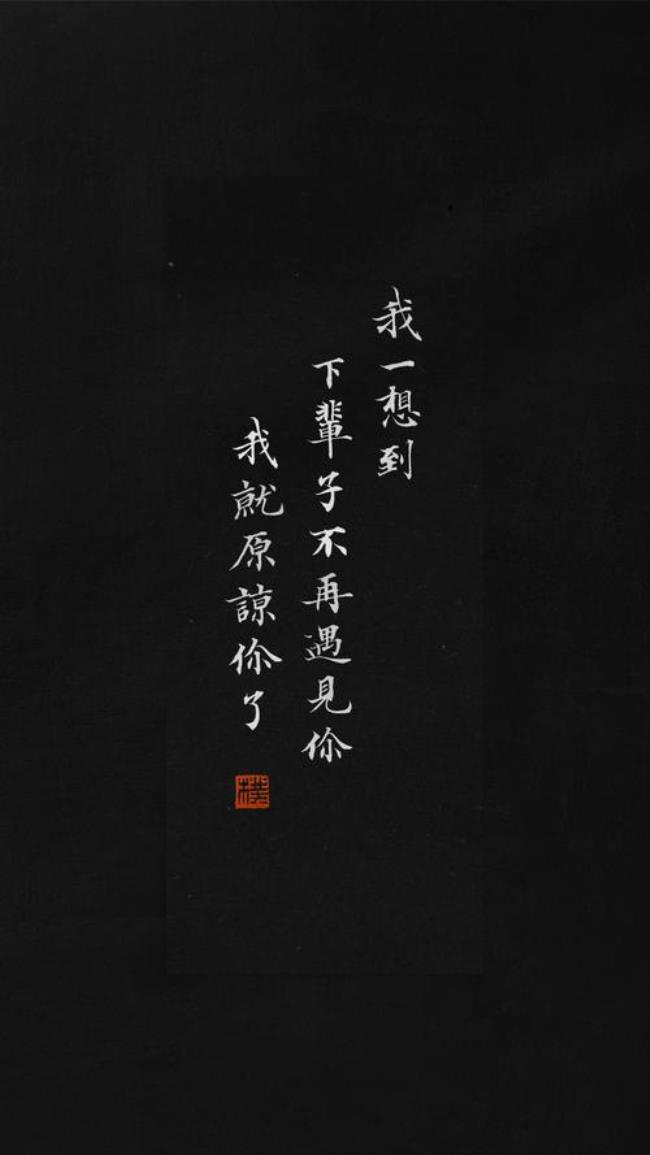 我一想到
下輩子不再遇見你
我就原諒你了